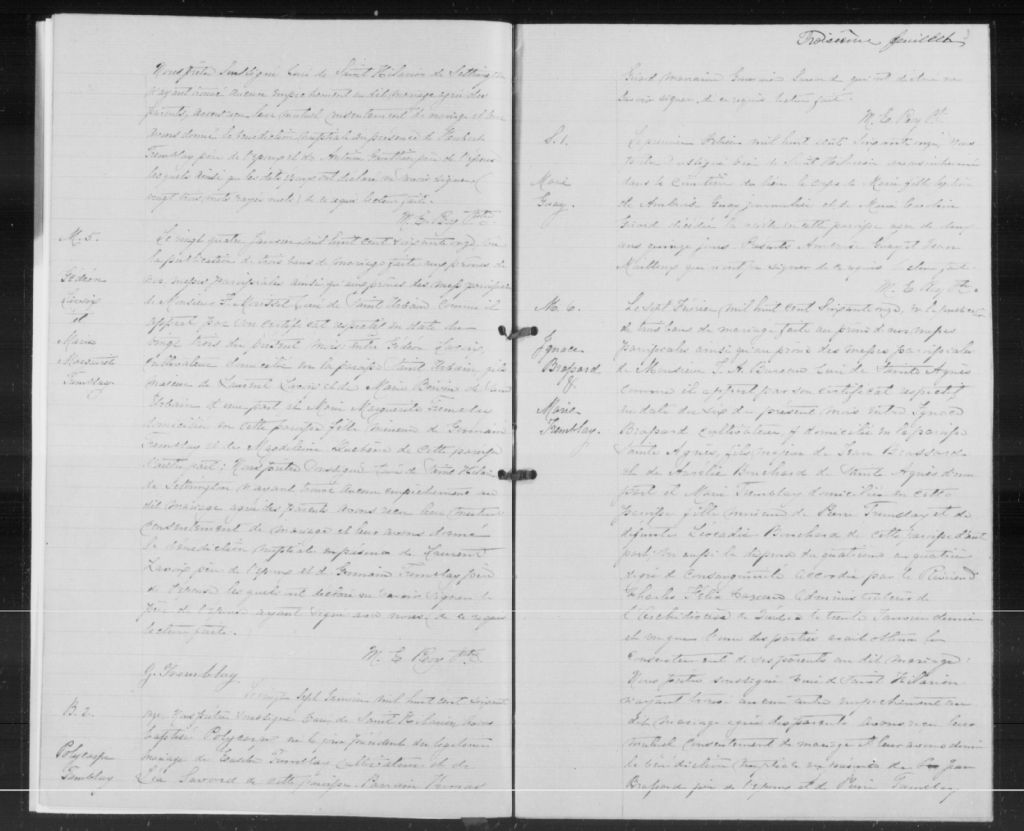 Nous prêtre soussigné Curé de Saint Hilarion de Settrington
n'ayant trouvé aucun empêchement au dit mariage agréé des
parents, avons reçu leur mutuel consentement de mariage et leur
avons donné la bénédiction nuptiale en présence de
Tremblay père de l'époux et de Antoine Gauthier père de l'épouse
lesquels ainsi que les dits époux ont déclaré ne savoir signer
vingt trois mots rayés nuls de ce requis lecture faite.
M. E. Roy Ptre
M. 5.
Gédéon
Lavoie
et
Marie
Marguerite
Tremblay
Le vingt quatre Janvier mil huit cent soixante onze, vu
la publication de trois bans de mariage faite aux prônes de
nos messes paroissiales ainsi qu'aux prônes des messes paroissiales
de Monsieur Curé de Saint Urbain comme il
appert par son certificat en date du
vingt trois du présent mois entre Gédéon Lavoie,
cultivateur domicilié en la paroisse Saint Urbain fils
majeur de Laurent Lavoie et de Marie de Saint
Urbain d'une part et Marie Marguerite Tremblay
domiciliée en cette paroisse fille mineure de Germain
Tremblay et de Magdeleine de cette paroisse
d'autre part; Nous prêtre soussigné Curé de Saint Hilarion
de Settrington n'ayant trouvé aucun empêchement au
dit mariage agréé des parents avons reçu leur mutuel
consentement de mariage et leur avons donné
la bénédiction nuptiale en présence de Laurent
Lavoie père de l'époux et de Germain Tremblay père
de l'épouse lesquels ont déclaré ne savoir signer le
père de l'épouse ayant signé avec nous de ce requis
lecture faite.
M. E. Roy Ptre
G. Tremblay
B. 2.
Polycarpe
Tremblay
Le vingt sept Janvier mil huit cent soixante
onze Nous prêtre soussigné Curé de Saint Hilarion, avons
baptisé Polycarpe né le jour précédent du légitime
mariage de Tremblay cultivateur et de
Léa Savard de cette paroisse. Parrain Thomas
Troisième feuillet
Girard marraine Savard qui ont déclaré ne
savoir signer de ce requis lecture faite.
M. E. Roy Ptre
S. 1.
Marie
Guay.
Le premier Février mil huit cent soixante onze Nous
prêtre soussigné Curé de Saint Hilarion avons inhumé
dans le cimetière du lieu le corps de Marie fille légitime
de Ambroise Guay journalier et de Marie Caroline
Girard décédée la veille en cette paroisse âgée de deux
ans onze jours. Présents Ambroise Guay et Jean
Mailloux qui n'ont pu signer de ce requis lecture faite.
M. E. Roy Ptre.
M. 6.
Ignace
Brassard
&
Marie
Tremblay.
Le sept Février mil huit cent soixante onze, vu la publication
de trois bans de mariage faite au prône de nos messes
paroissiales ainsi qu'au prône des messes paroissiales
de Monsieur Bureau Curé de Sainte Agnès
comme il appert par son certificat
en date du six du présent mois entre Ignace
Brassard cultivateur, domicilié en la paroisse
Sainte Agnès, fils majeur de Jean Brassard
et de Aurélie Bouchard de Sainte Agnès d'une
part et Marie Tremblay domiciliée en cette
paroisse fille mineure de Pierre Tremblay et de
défunte Léocadie Bouchard de cette paroisse d'autre
part; Vu aussi la dispense du quatrième au quatrième
degré de consanguinité accordée par le Révérend
Charles Félix Cazeau Administrateur de
l'Archidiocèse de Québec le trente Janvier dernier
et vu que l'une des parties avait obtenu le
consentement de ses parents au dit mariage:
Nous prêtre soussigné Curé de Saint Hilarion
n'ayant trouvé aucun autre empêchement au
dit mariage agréé des parents avons reçu leur
mutuel consentement de mariage et leur avons donné
la bénédiction nuptiale en présence de Jean
Brassard père de l'époux et de Pierre Tremblay